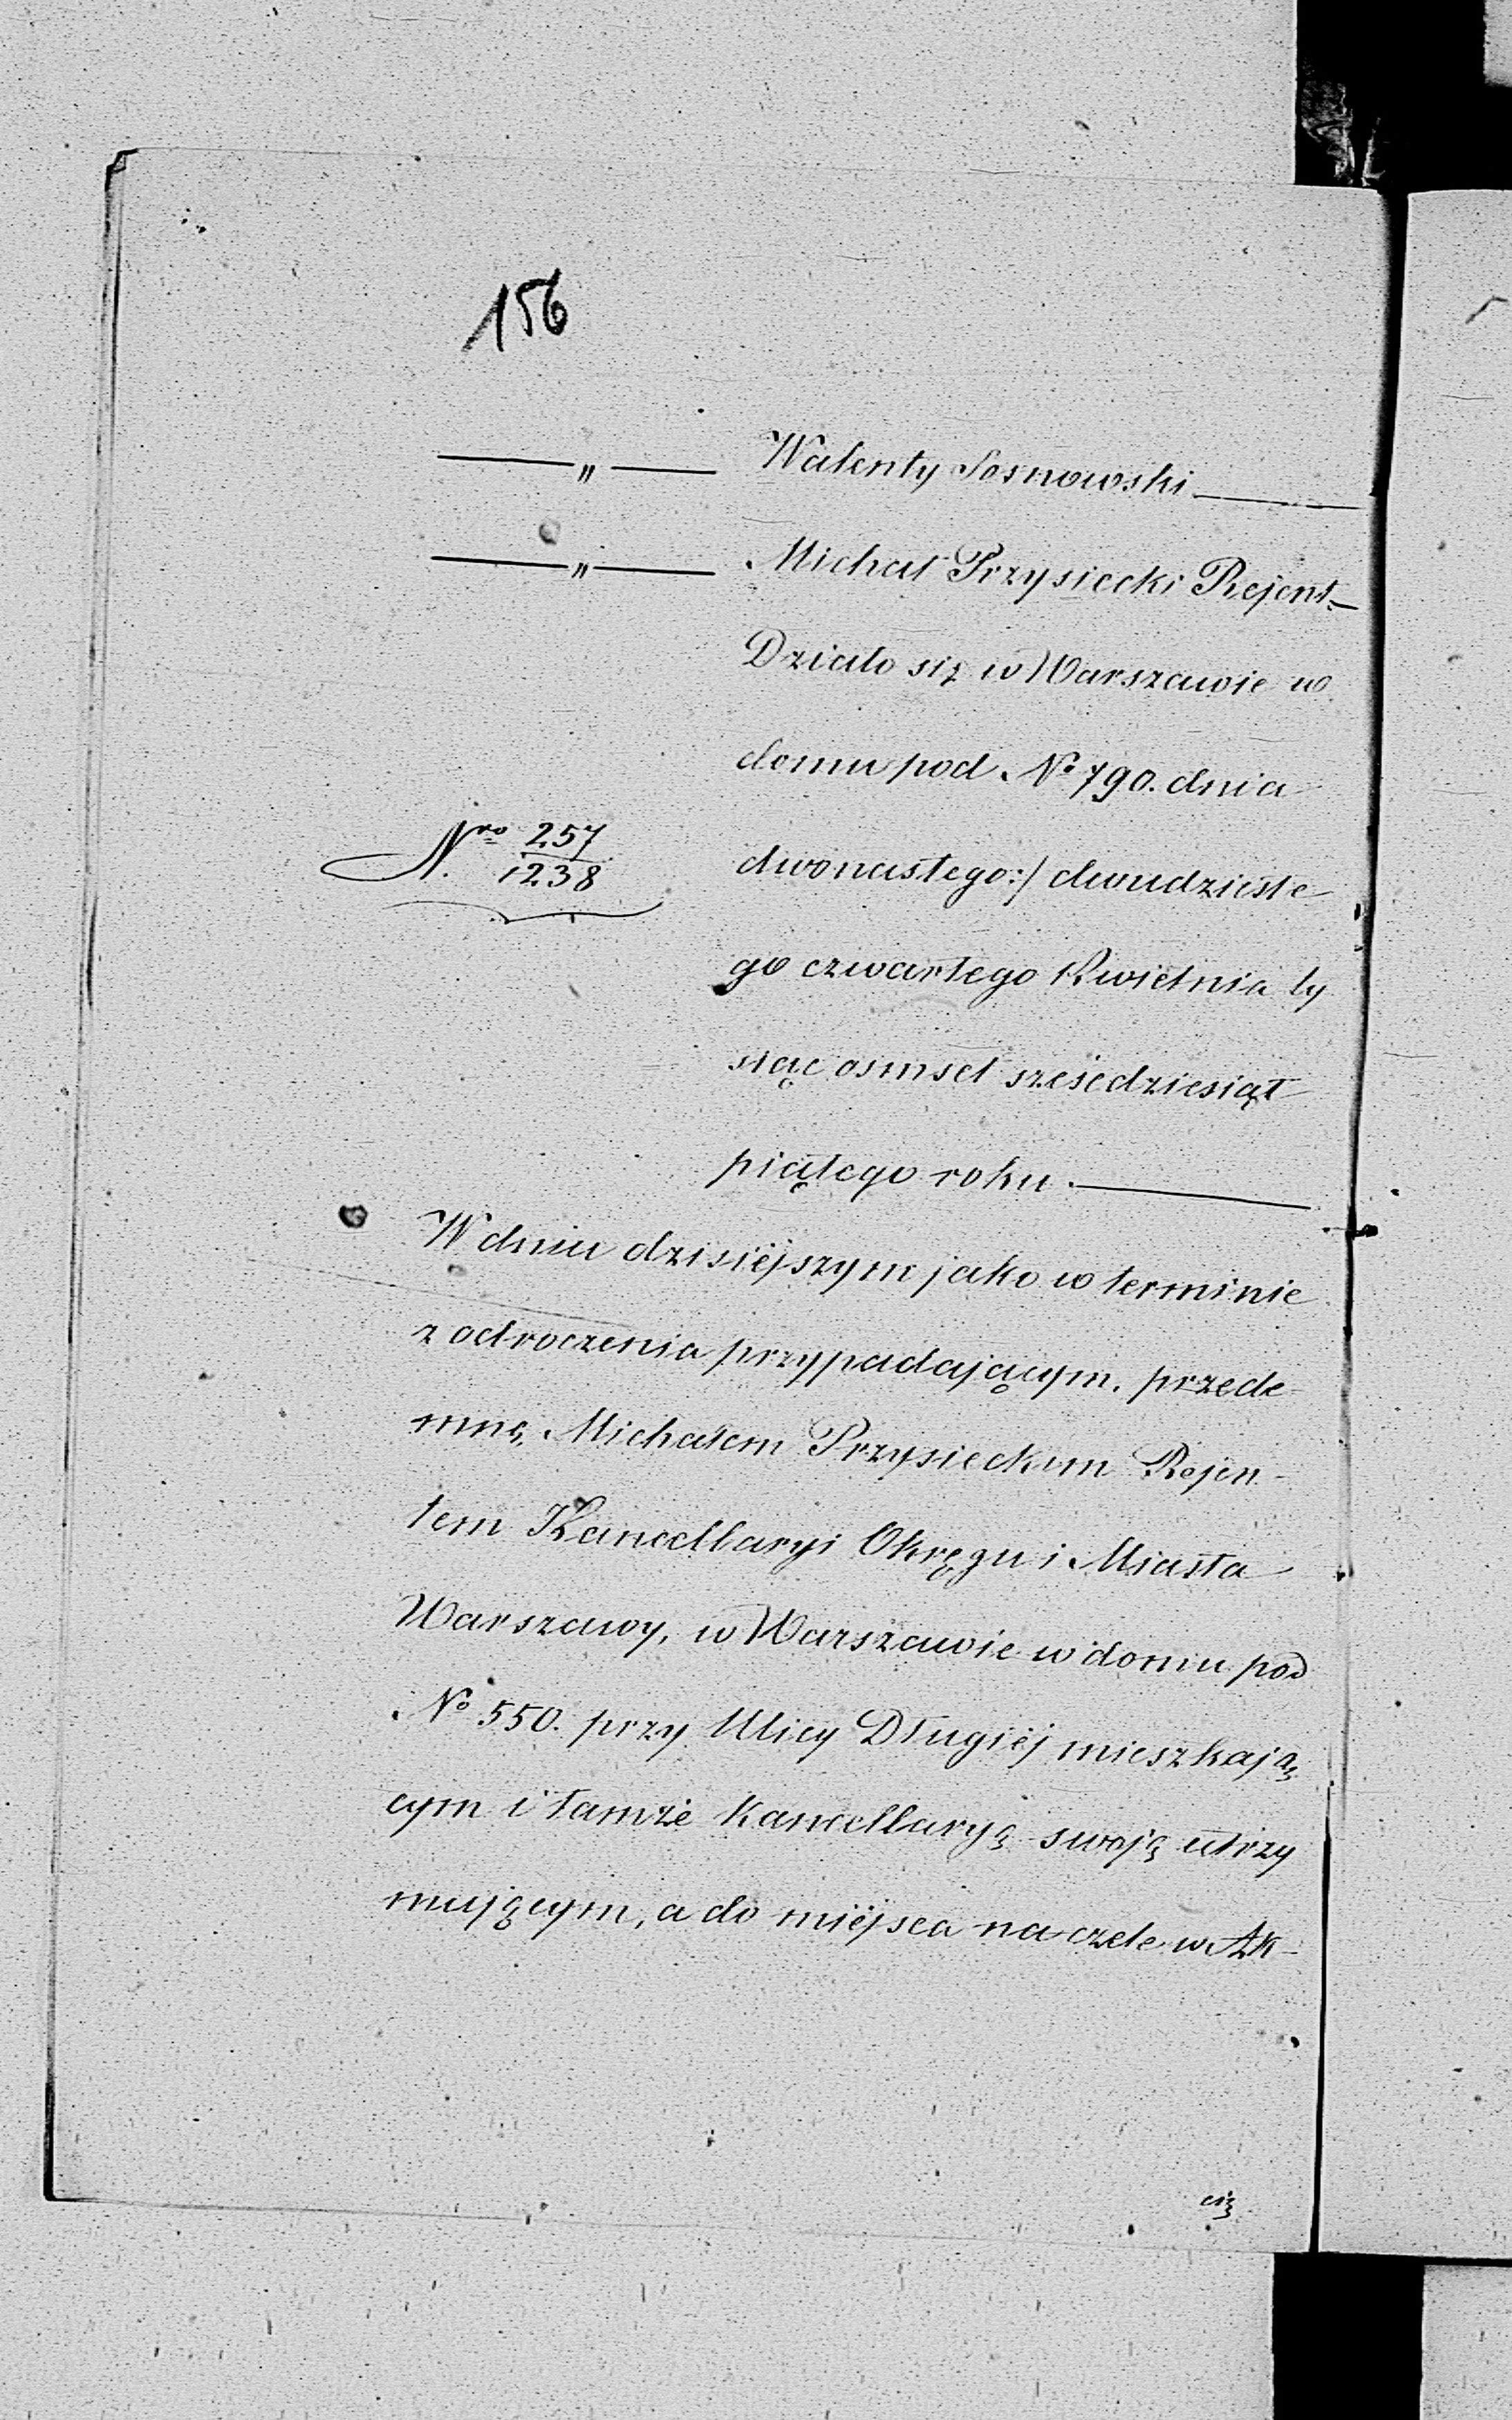 156
—„— Walenty Sosnowski
—„— Michał Przysiecki Rejent
Działo się w Warszawie w
domu pod No 790. dnia
Nro 257/1238
dwonastego:/ dwudzieste-
go czwartego Kwietnia ty
siąc osmset sześćdziesiąt
piątego roku.
W dniu dzisiéjszym jako w terminie
z odroczenia przypadającym, przede-
mną, Michałem Przysieckim Rejen-
tem Kancellaryi Okręgu i Miasta
Warszawy, w Warszawie w domu pod
No 550. przy Ulicy Długiéj mieszkają
cym i tamże Kancellaryą swoją utrzy
mującym, a do miéjsca na czele w Ak-
cie